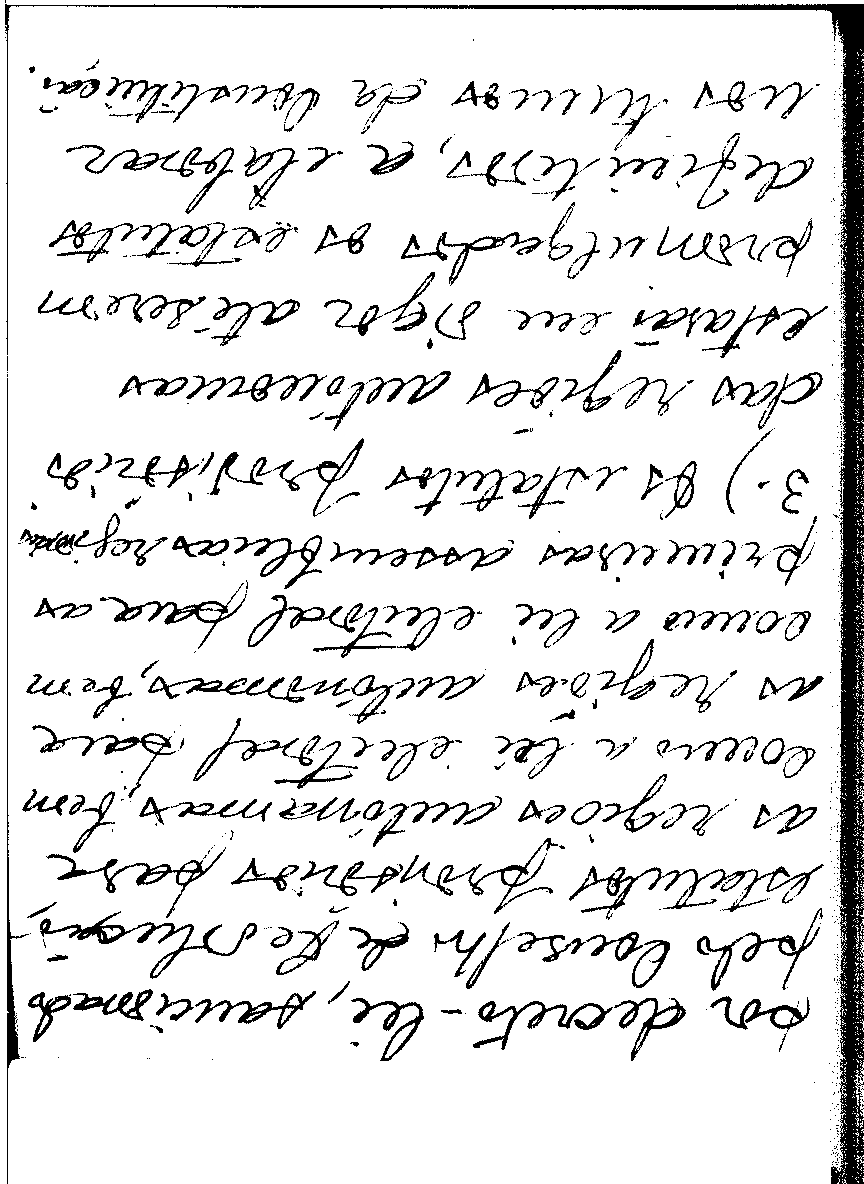 por decreto-lei, sancionado
pelo Conselho de Revolução,
estatutos provisórios para
as regiões autónomas, bem
como a lei electoral para
as regiões autónomas, bem
como a lei electoral para as
primeiras assembleias regionais
3.) Os estatutos provisórios
das regiões autónomas
estarão em vigor até serem
promulgados os estatutos
definitivos, a elaborar
nos termos da Constituição.